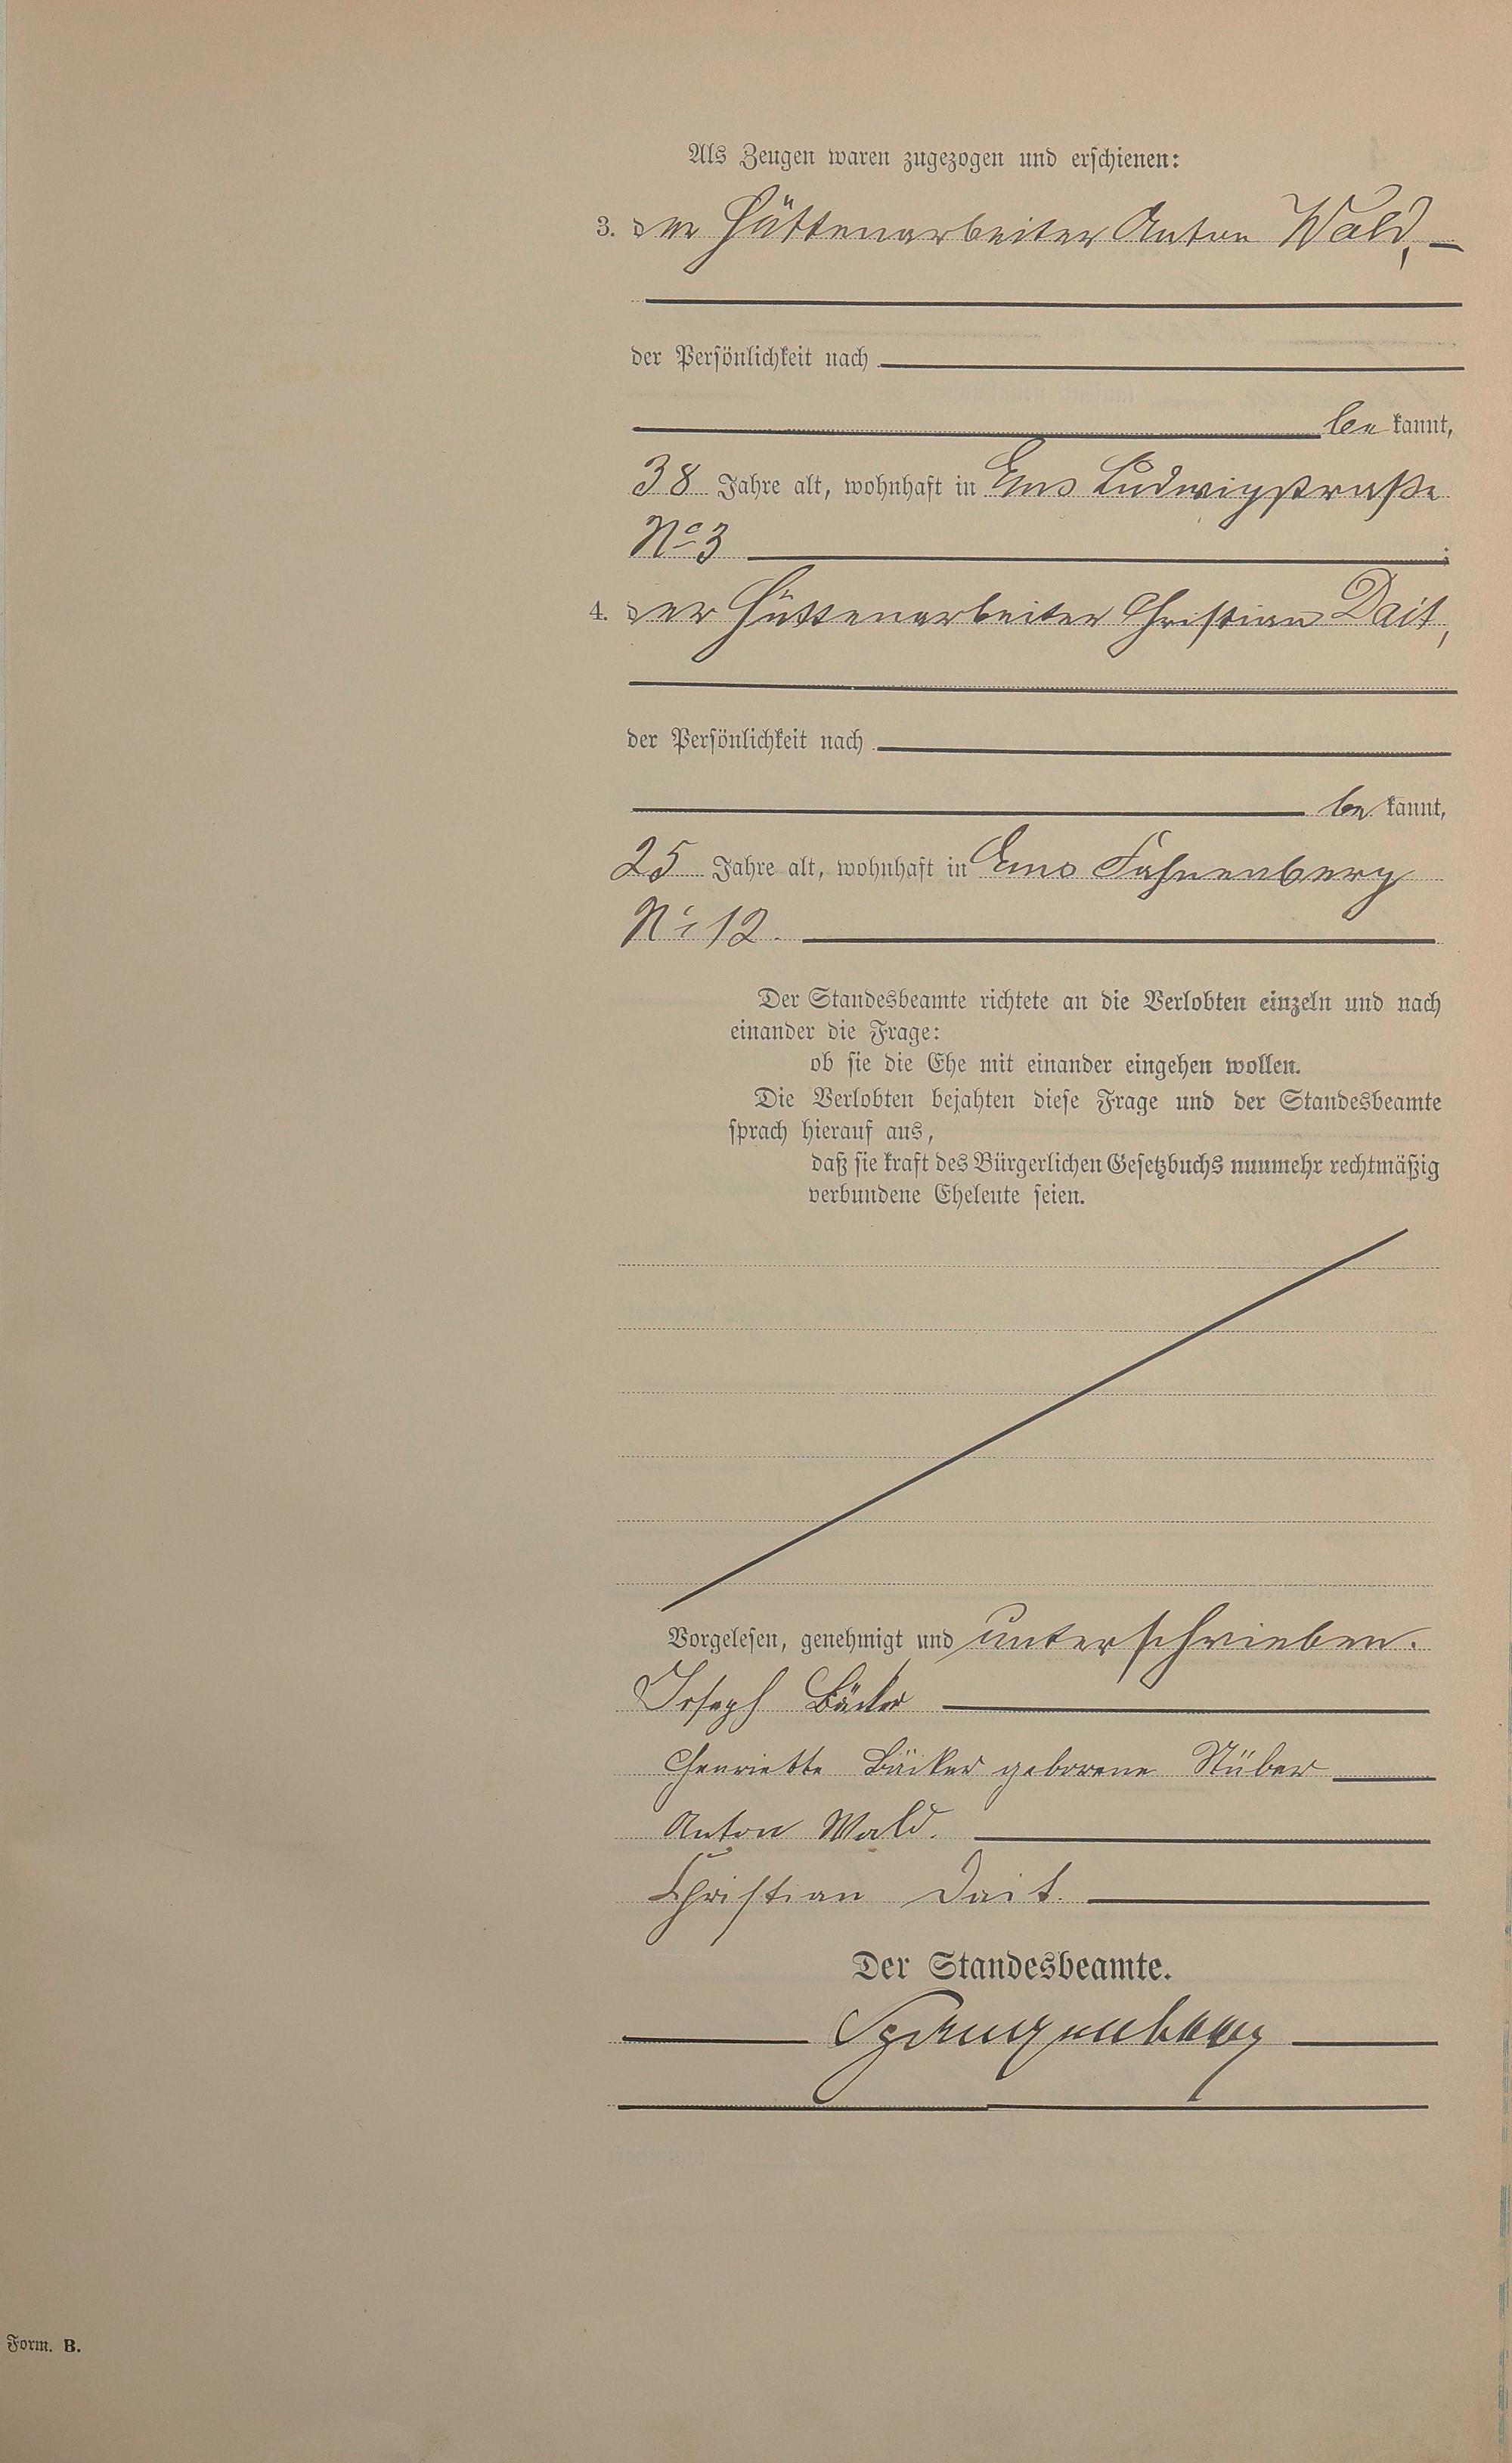 Als Zeugen waren zugezogen und erschienen:
3. der Hüttenarbeiter Anton Wald,
der Persönlichkeit nach
be kannt,
38 Jahre alt, wohnhaft in Ems Ludwigstraße
No 3 ;
4. der Hüttenarbeiter Christian Dait,
der Persönlichkeit nach
be kannt,
25 Jahre alt, wohnhaft in Ems Fahnenberg
No 12.
Der Standesbeamte richtete an die Verlobten einzeln und nach
einander die Frage:
ob sie die Ehe mit einander eingehen wollen.
Die Verlobten bejahten diese Frage und der Standesbeamte
sprach hierauf aus,
daß sie kraft des Bürgerlichen Gesetzbuchs nunmehr rechtmäßig
verbundene Eheleute seien.
Vorgelesen, genehmigt und unterschrieben.
Joseph Bäcker
Henriette Bäcker geborene Stüber
Anton Wald.
Christian Dait.
Der Standesbeamte.
Form. B.